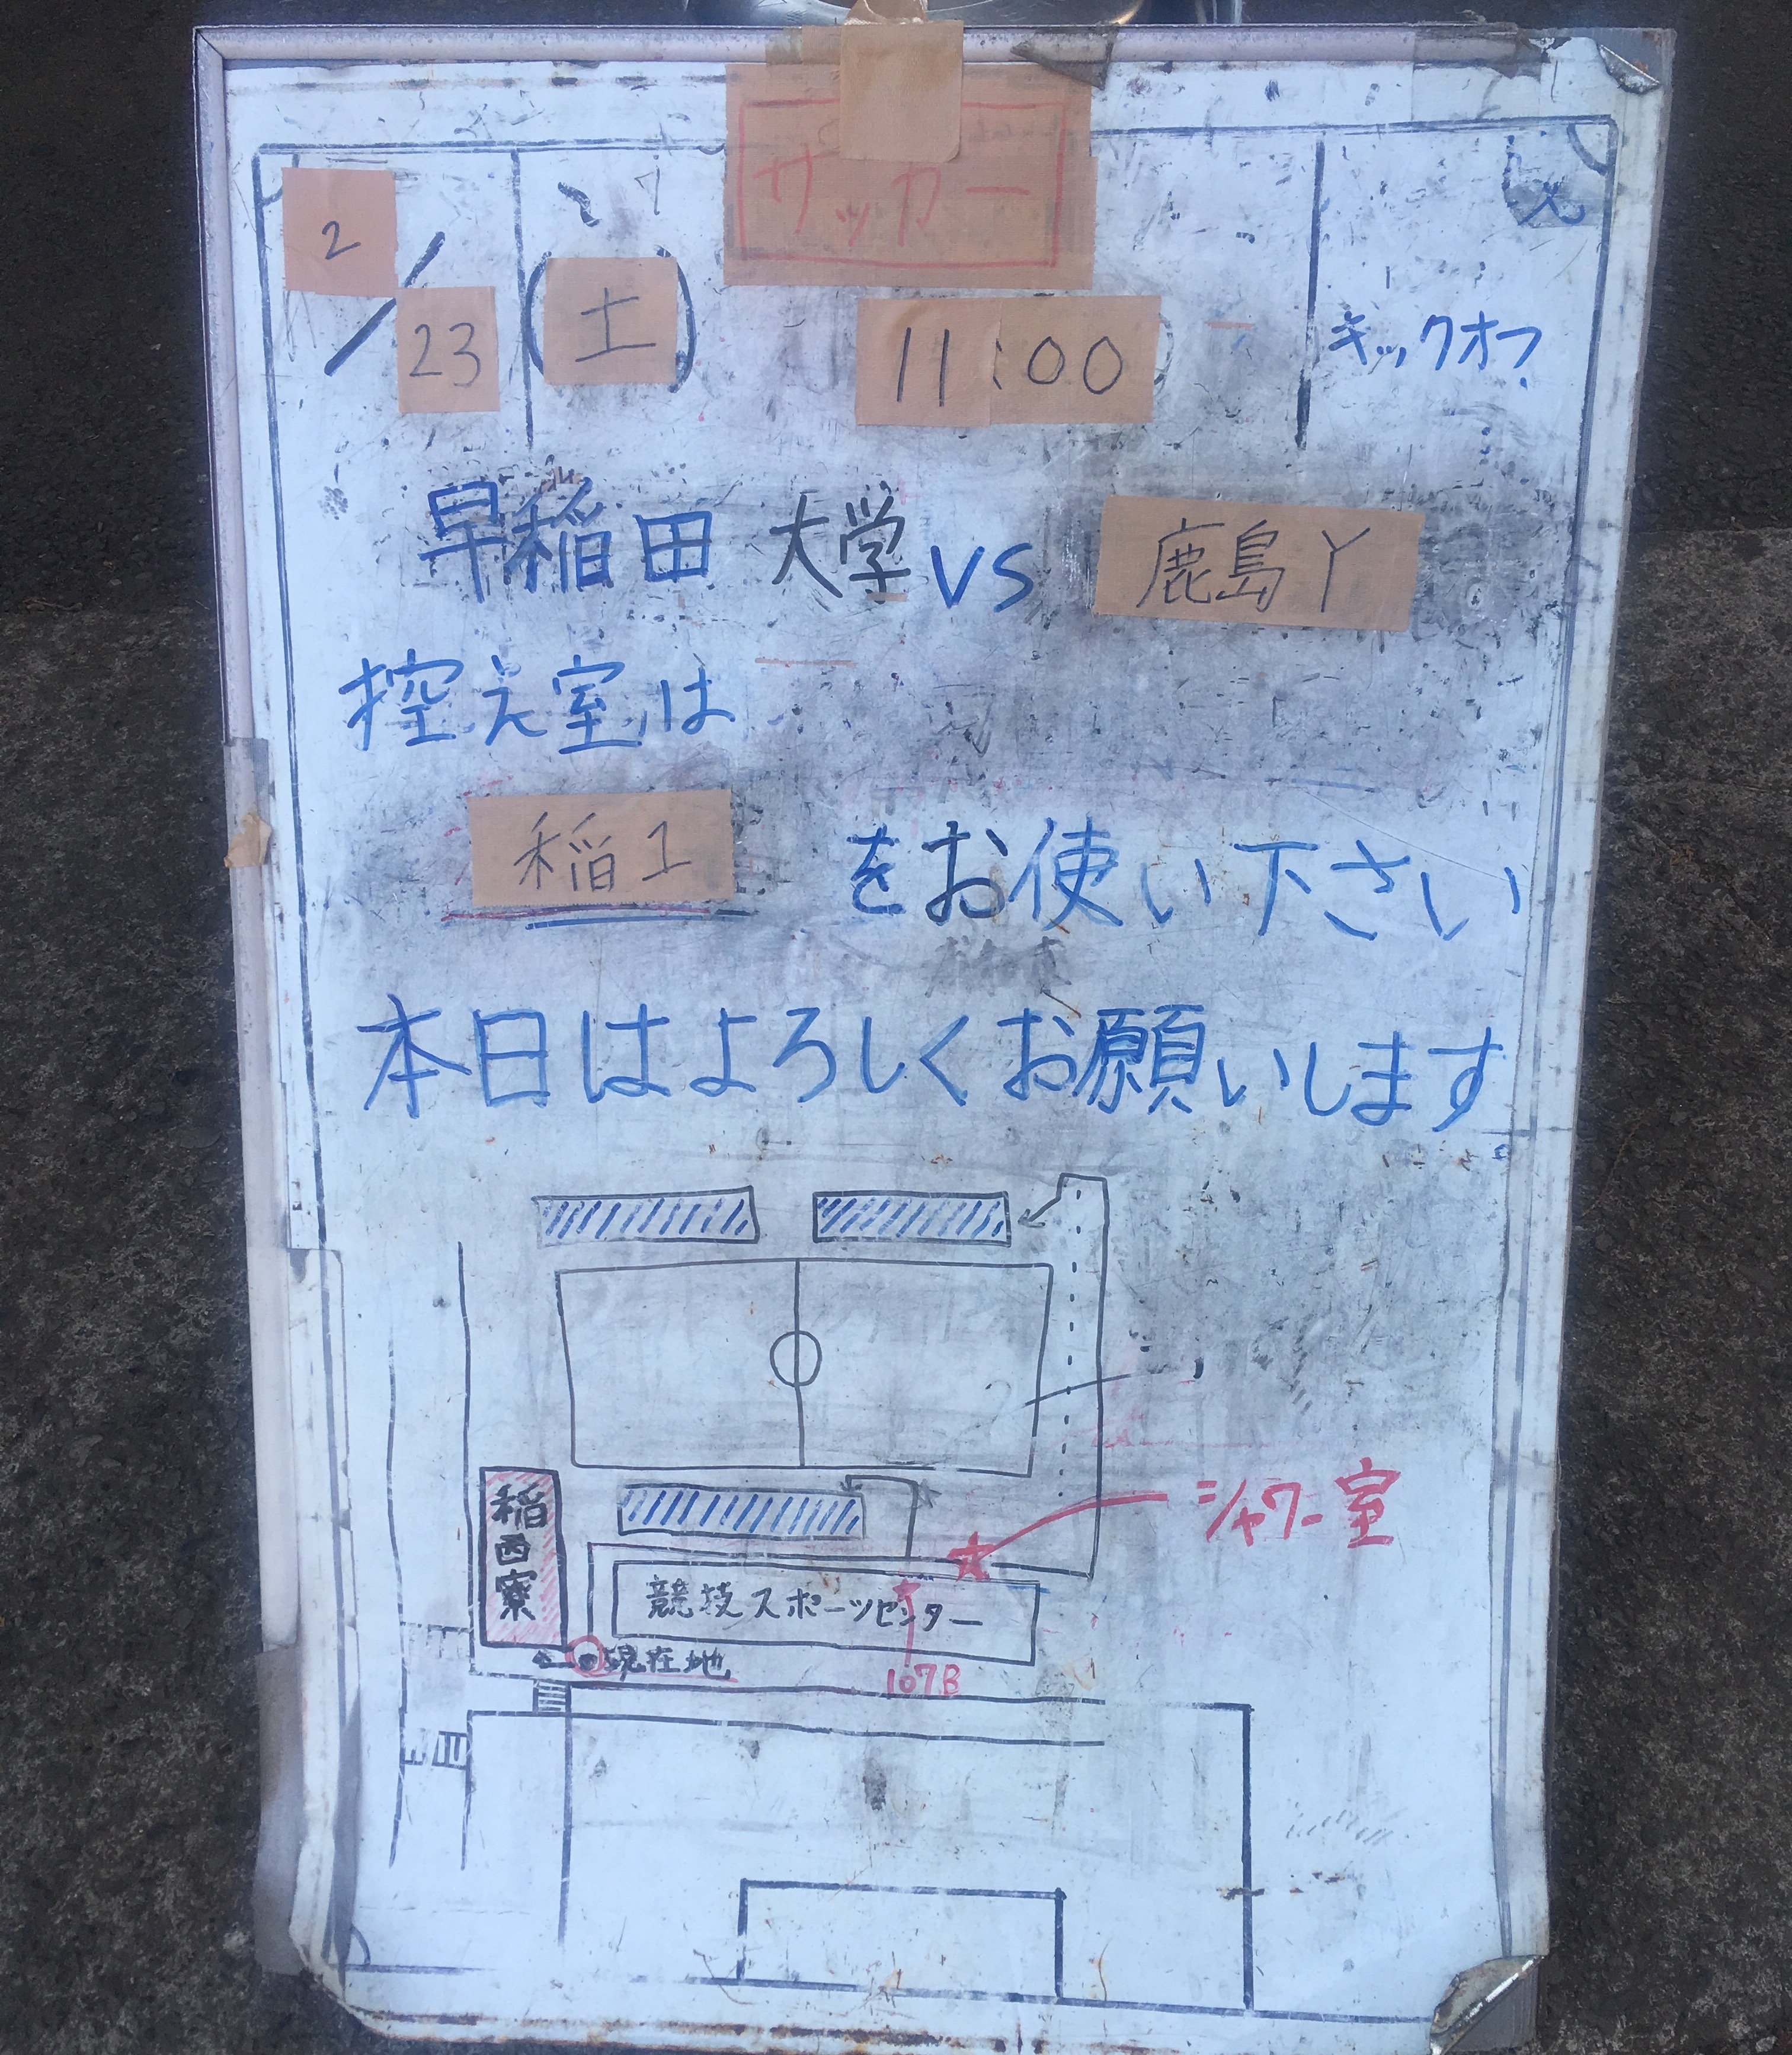 サッカー
2/23(土) 11:00 キックオフ
早稲田大学 vs 鹿島Y
控え室は
稲1 をお使い下さい
本日はよろしくお願いします
シャワー室
稲西寮
競技スポーツセンター
現在地
107B